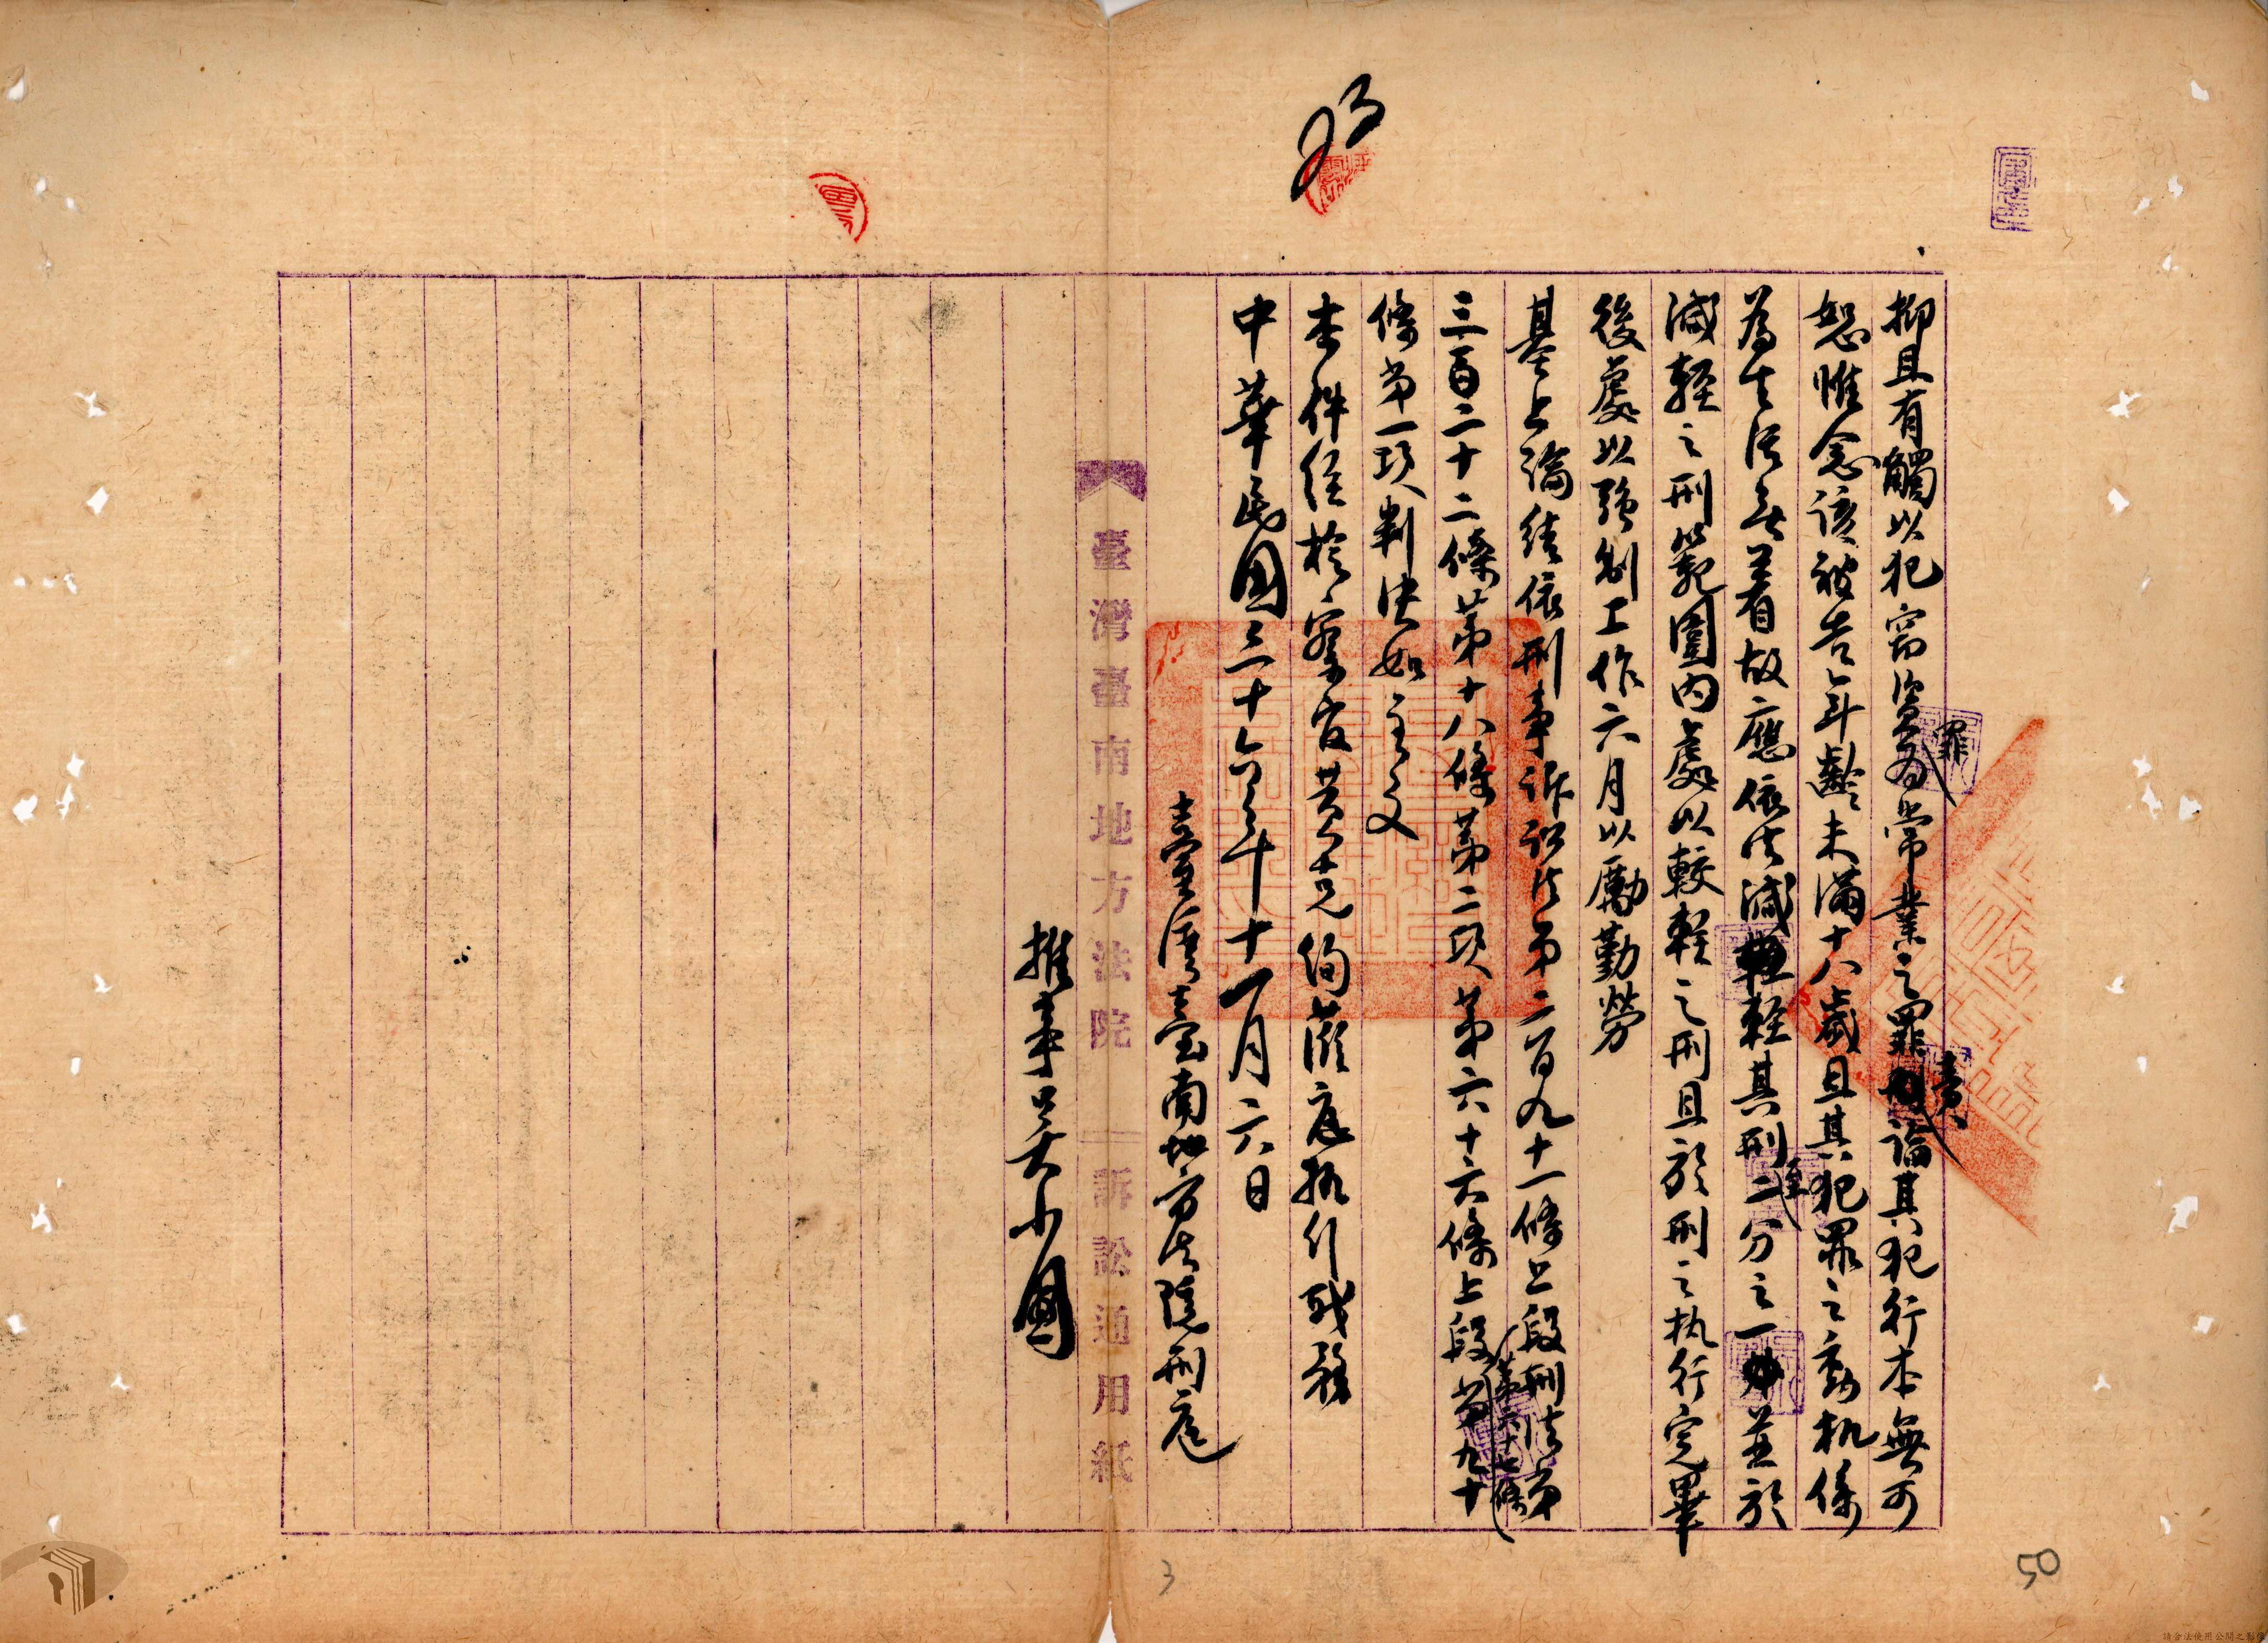 抑且有觸以犯竊盜罪為常業之罪責論其犯行本無可
恕惟念該被告年齡未滿十八歲且其犯罪之動機係
為生活無着故應依法減輕其刑至二分之一並於
減輕之刑範圍內處以較輕之刑且於刑之执行完畢
後處以強制工作六月以勵勤勞
基上論結依刑事訴訟法第二百九十一條上段刑法第
三百二十二條第十八條第二項第六十六條上段第六十七條第九十
條第一項判決如主文
本件經檢察官黃士元蒞庭执行职務
中華民國三十六年十一月六日
臺灣臺南地方法院刑庭
臺灣臺南地方法院 訴訟通用紙
推事吳
50
3
請合法使用公開之影像